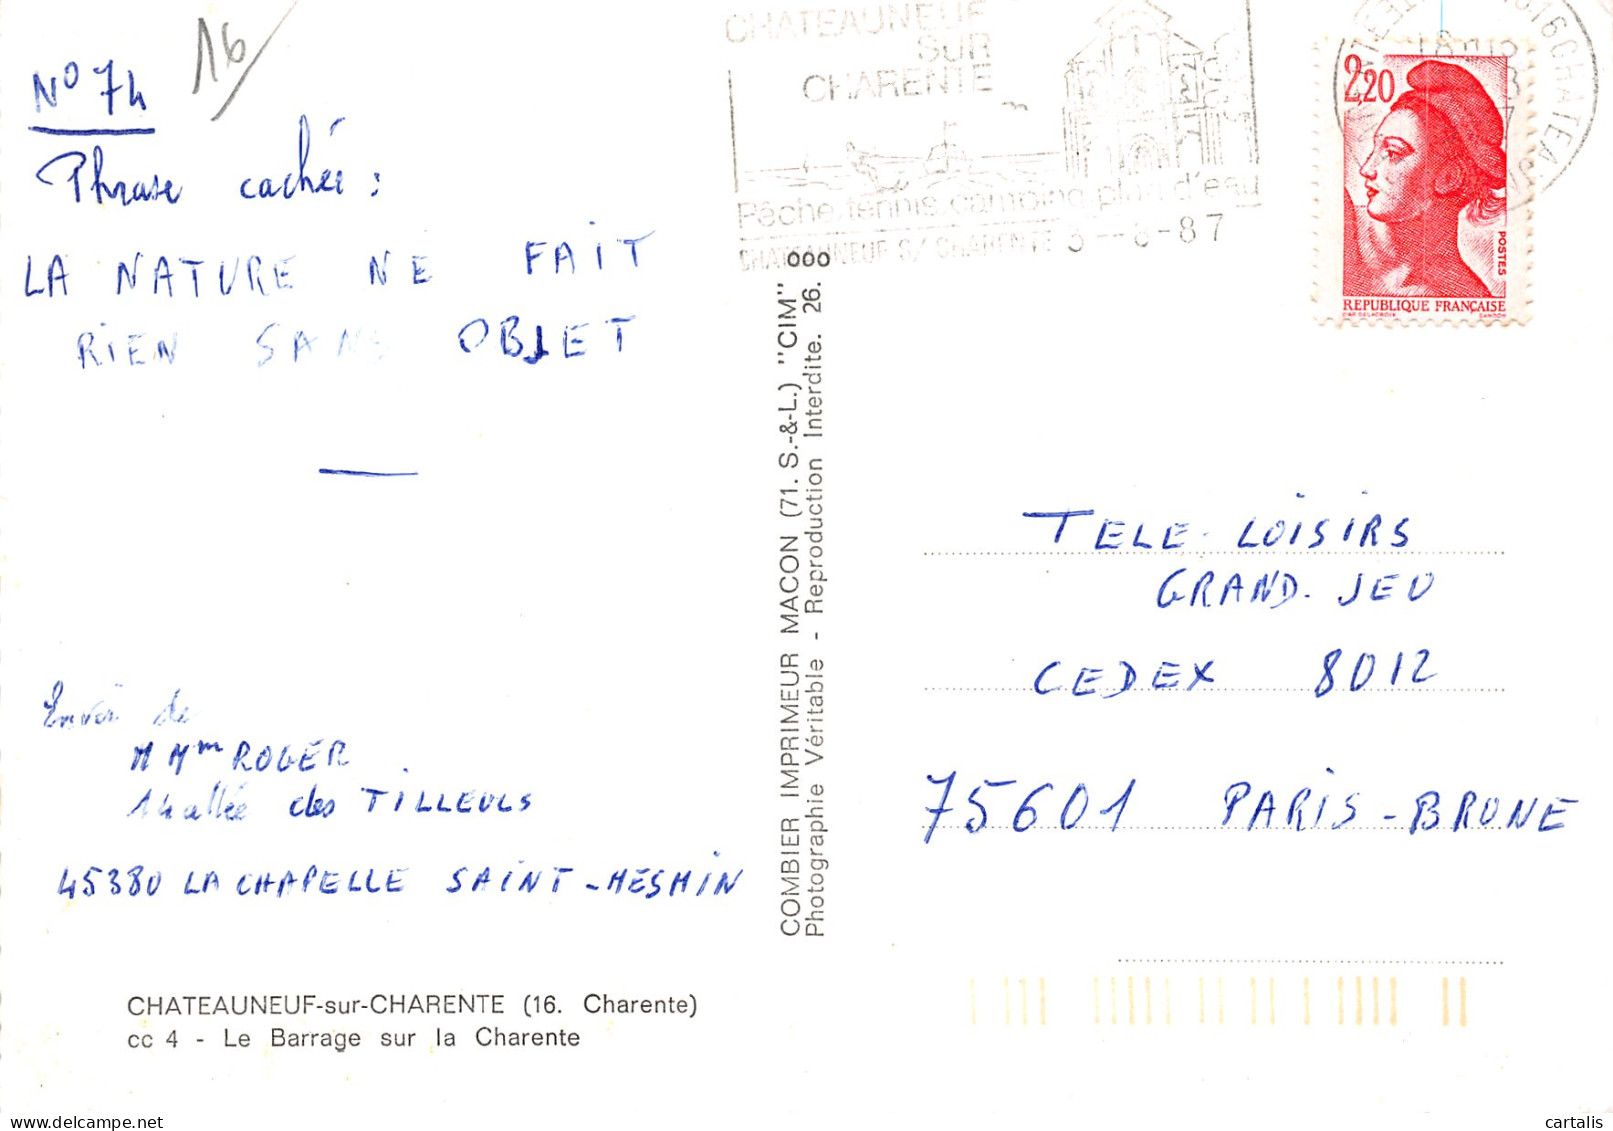 16
N° 74
Phrase cachée :
LA NATURE NE FAIT
RIEN SANS OBJET
Envoi de
M Mme ROGER
14 allée des TILLEULS
45380 LA CHAPELLE SAINT-MESMIN
CHATEAUNEUF-sur-CHARENTE (16. Charente)
cc 4 - Le Barrage sur la Charente
COMBIER IMPRIMEUR MACON (71. S.-&-L.) "CIM"
Photographie Véritable - Reproduction Interdite. 26.
000
CHATEAUNEUF
SUR
CHARENTE
Pêche.tennis.camping.plan d'eau
CHATEAUNEUF S/ CHARENTE 3-8-87
2,20
POSTES
REPUBLIQUE FRANÇAISE
D'AP. DELACROIX GANDON
16 CHATEA
TELE-LOISIRS
GRAND.JEU
CEDEX 8012
75601 PARIS-BRUNE
www.delcampe.net
cartalis